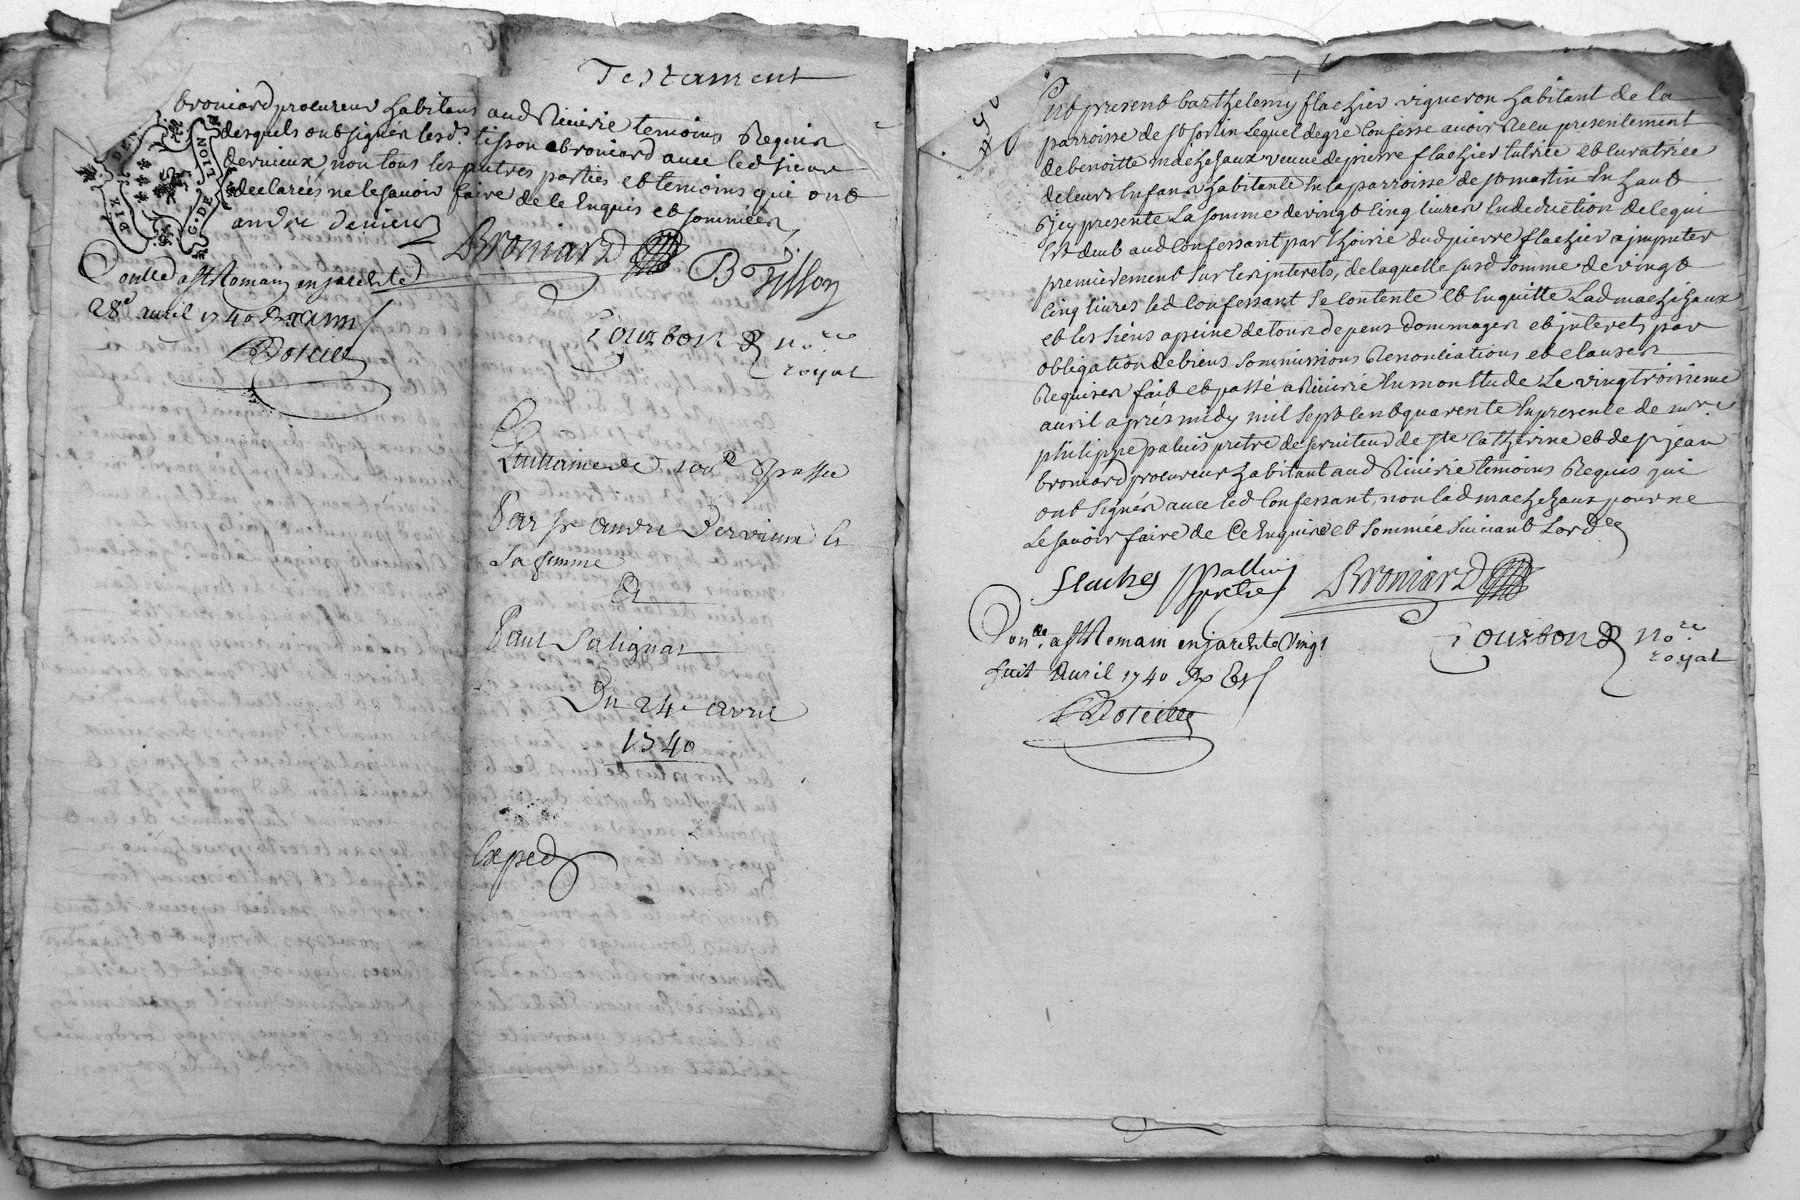 Testament
broniard procureur habitans aud Riuerie temoins Requis
desquels ont signés lesd. tisson et broniard auec led sieur
deruieux non tous les autres parties et temoins qui ont
declarés ne le sauoir faire de ce Enquis et sommées
DIX DEN
G. DE LION
andre deruieux
Broniard
B Tisson
Conllé a St Romain en jarest le
28e auril 1740
Bourbon
no.re
royal
Quittance de 100tt passée
Par Sr andré Dervieux et
Sa femme
A
Paul Salignat
Du 24e avril
1740
Exped
Fut present barthelemy flachier vigneron habitant de la
parroisse de st sorlin Lequel de gré Confesse auoir Receu presentement
de benoitte machizaux veuue de pierre flachier tutrice et Curatrice
de leurs Enfans habitante En la parroisse de st martin En haut
Icy presente La somme de vingt Cinq liures En deduction de ce qui
Est deub aud Confessant par L'hoirie dud pierre flachier a jmputer
premierement sur les jnterets, de laquelle susd somme de vingt
Cinq liures led Confessant se Contente et En quitte Lad machizaux
et les siens a peine de tous depens dommages et jnterets par
obligation de biens sommissions Renonciations et clauses
Requises fait et passé a Riuerie En mon Etude Le vingtroisieme
auril aprés midy mil sept Cent quarente En presence de mre
philippe paluis pretre deseruiteur de ste Catherine et de sr jean
broniard procureur habitant aud Riuerie temoins Requis qui
ont signés auec led Confessant, non lad machizaux pour ne
Le sauoir faire de Ce Enquise et sommée suiuant Lord.ce
flachey
pretre
Broniard
Con.lé a St Romain en jarest le Vingt
huit Auril 1740
Bourbon
no.re
royal